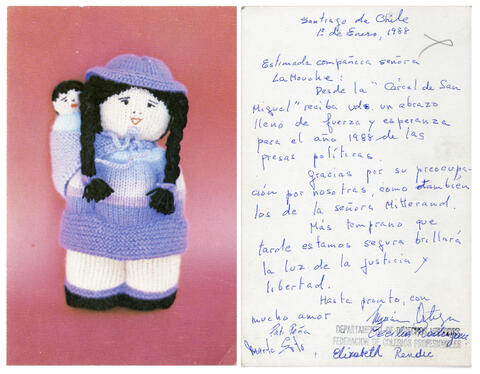 Santiago de Chile
1º de Enero, 1988
Estimada compañera señora
La Mouche:
Desde la "Cárcel de San
Miguel" reciba uds. un abrazo
lleno de fuerza y esperanza
para el año 1988 de las
presas políticas.
Gracias por su preocupa-
ción por nosotras, como también
los de la señora Mitterand.
Más temprano que
tarde estamos segura brillará
la luz de la justicia y
libertad.
Hasta pronto, con
mucho amor
Pati Peña
Cecilia
DEPARTAMENTO DE
FEDERACION DE COLEGIOS PROFESIONALES
Elizabeth Rendic